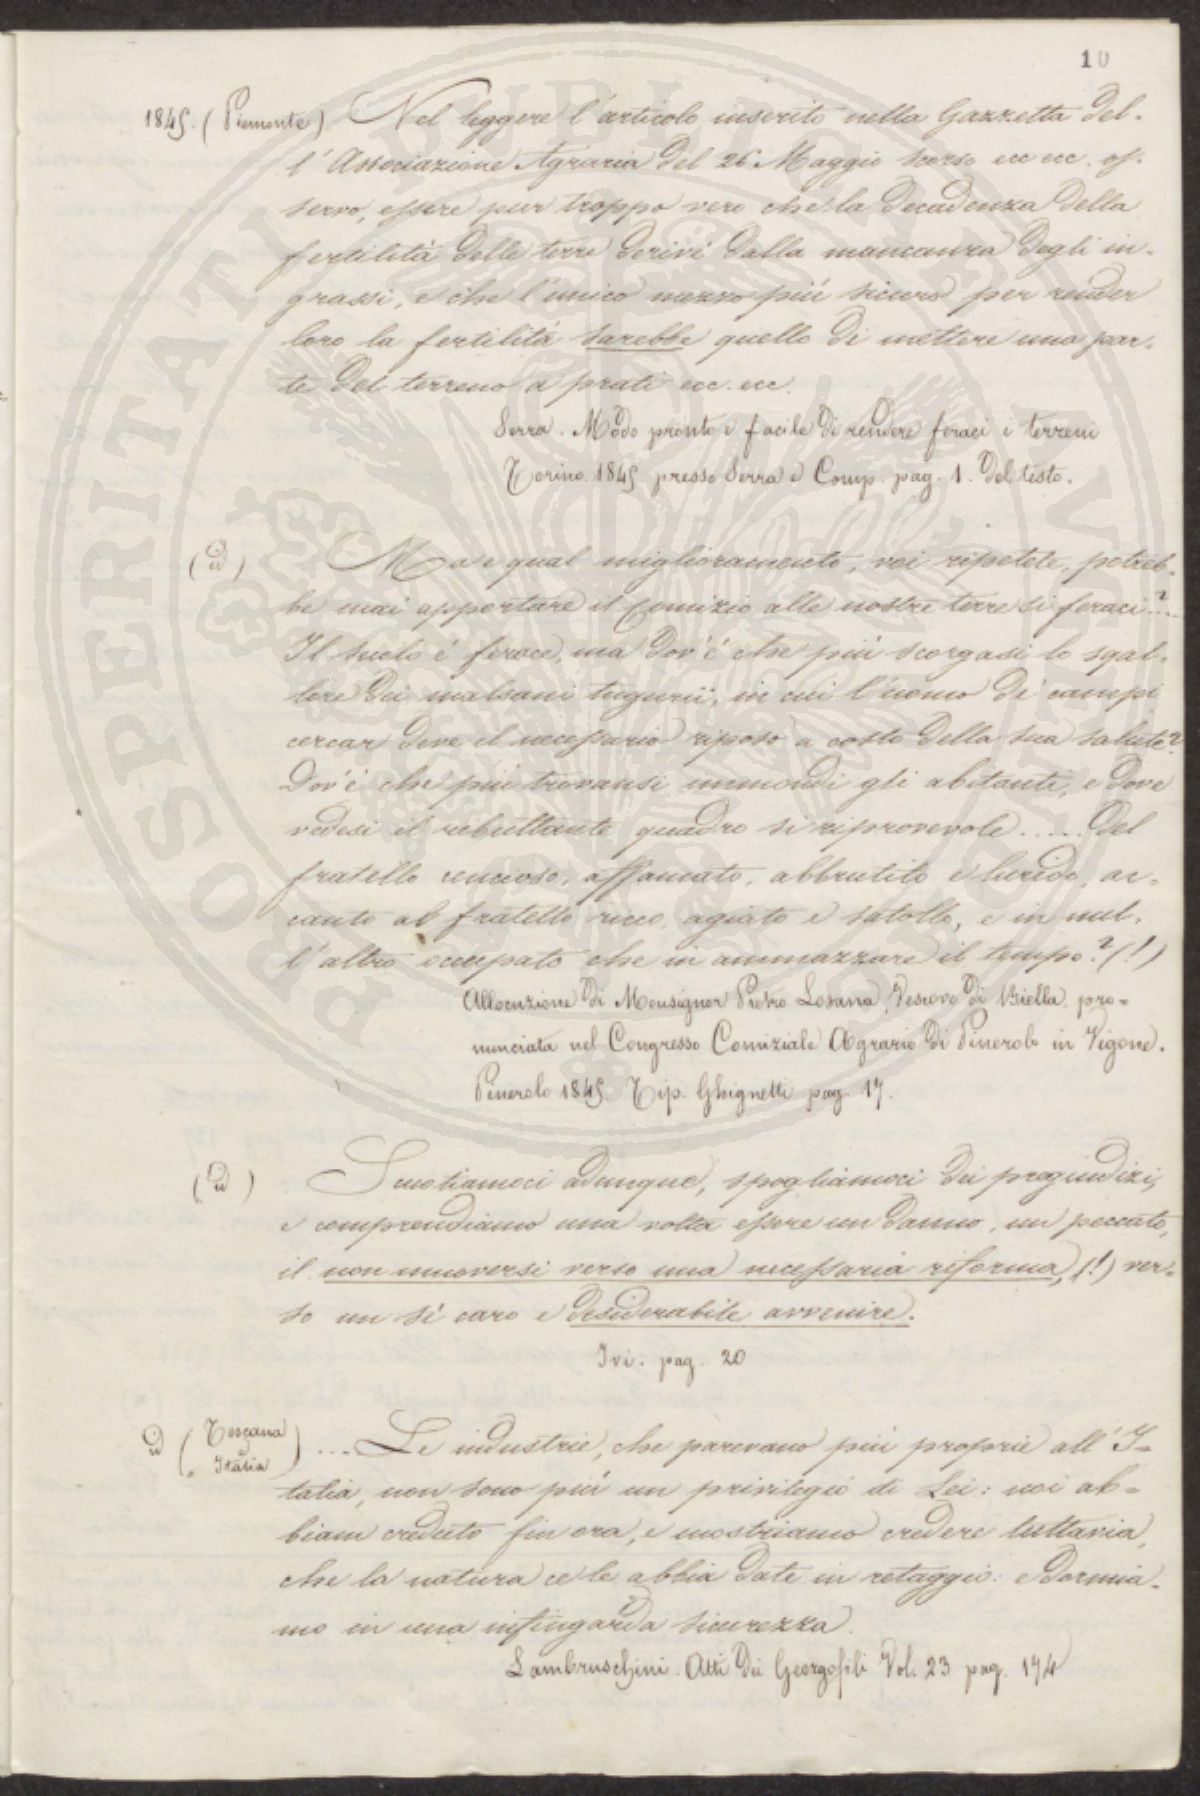 10
1845. (Piemonte) Nel leggere l'articolo inserito nella Gazzetta del-
l'Associazione Agraria del 26 Maggio scorso ecc ecc. os-
servo, essere pur troppo vero che la decadenza della
fertilità delle terre derivi dalla mancanza degli in-
grassi, e che l'unico mezzo più sicuro per render
loro la fertilità sarebbe quello di mettere una par-
te del terreno a prati ecc. ecc.
Serra. Modo pronto e facile di rendere feraci i terreni
Torino. 1845 presso Serra e Comp. pag. 1. del testo.
(id) Ma e qual miglioramento, voi ripetete, potreb-
be mai apportare il Comizio alle nostre terre sì feraci?...
Il suolo è ferace, ma dov'è che più scorgasi lo squal-
lore dei malsani tugurii, in cui l'uomo de' campi
cercar deve il necessario riposo a costo della sua salute?
Dov'è che più trovansi immondi gli abitanti, e dove
vedesi il ributtante quadro sì riprovevole ..... Del
fratello cencioso, affamato, abbrutito e lurido, ac-
canto al fratello ricco, agiato e satollo, e in nul-
l'altro occupato che in ammazzare il tempo? (!)
Allocuzione di Monsignor Pietro Losana, Vescovo di Biella, pro-
nunciata nel Congresso Comiziale Agrario di Pinerolo in Vigone.
Pinerolo 1845. Tip. Ghignetti pag. 17.
(id) Scuotiamoci adunque, spogliamoci dei pregiudizi,
e comprendiamo una volta essere un danno, un peccato,
il non muoversi verso una necessaria riforma, (!) ver-
so un sì caro e desiderabile avvenire.
Ivi. pag. 20
id (Toscana e Italia) .... Le industrie, che parevano più proprie all'I-
talia, non sono più un privilegio di Lei: noi ab-
biam creduto fin ora, e mostriamo credere tuttavia,
che la natura ce le abbia date in retaggio: e dormia-
mo in una infingarda sicurezza.
Lambruschini. Atti dei Georgofili Vol. 23 pag. 174
PROSPERITATI PUBLICAE AUGENDAE